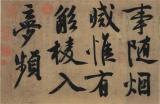 事随烟
滅惟有
觚棱入
夢頻